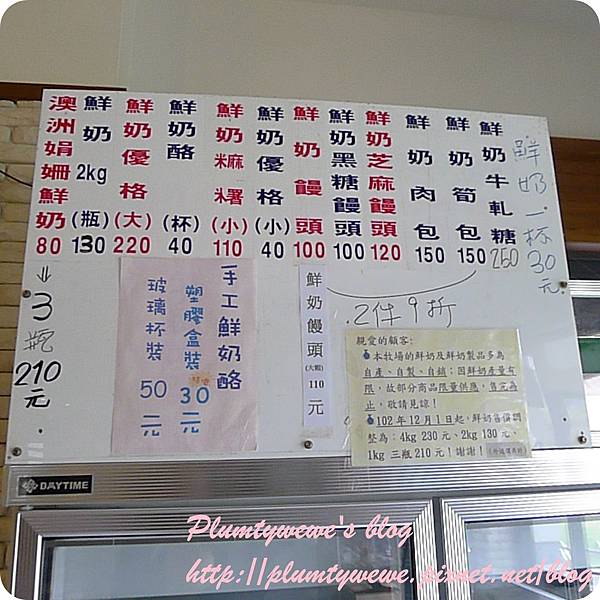 澳洲娟姍鮮奶 80
鮮奶 2kg (瓶) 130
鮮奶優格 (大) 220
鮮奶酪 (杯) 40
鮮奶麻糬 (小) 110
鮮奶優格 (小) 40
鮮奶饅頭 100
鮮奶黑糖饅頭 100
鮮奶芝麻饅頭 120
鮮奶肉包 150
鮮奶筍包 150
鮮奶牛軋糖 250
鮮奶一杯30元
⇓3瓶210元
手工鮮奶酪
塑膠盒裝 30元
玻璃杯裝 50元
鮮奶饅頭(大顆)110元
2件9折
親愛的顧客:
本牧場的鮮奶及鮮奶製品多為
自產、自製、自銷;因鮮奶產量有
限,故部分商品限量供應,售完為
止,敬請見諒!
102年12月1日起,鮮奶售價調
整為:4kg 230元、2kg 130元、
1kg 三瓶210元!謝謝!
DAYTIME
Plumtywewe's blog
http://plumtywewe.pixnet.net/blog